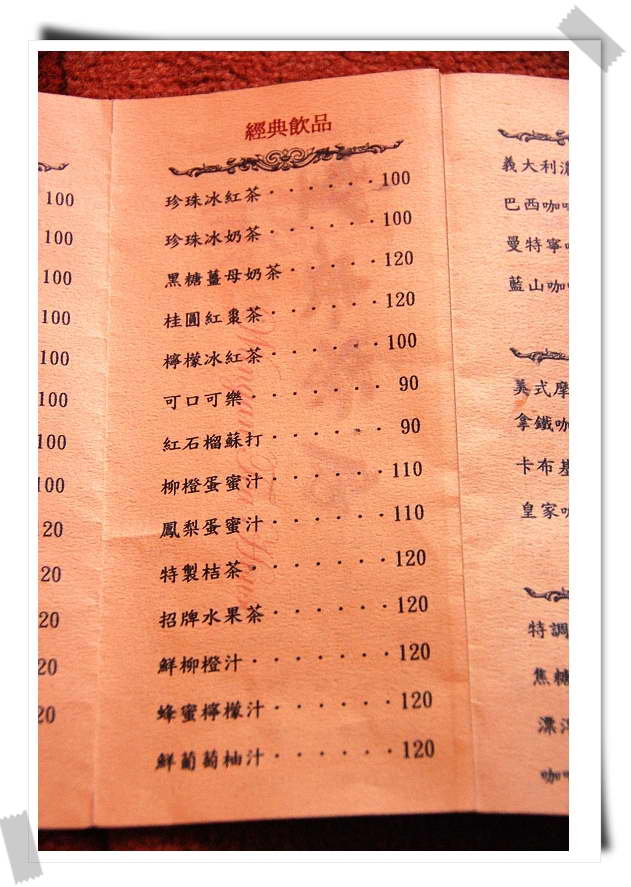 100
100
100
100
100
100
100
100
20
20
20
20
20
經典飲品
珍珠冰紅茶······100
珍珠冰奶茶······100
黑糖薑母奶茶·····120
桂圓紅棗茶······120
檸檬冰紅茶······100
可口可樂·······90
紅石榴蘇打······90
柳橙蛋蜜汁······110
鳳梨蛋蜜汁······110
特製桔茶·······120
招牌水果茶······120
鮮柳橙汁·······120
蜂蜜檸檬汁······120
鮮葡萄柚汁······120
義大利濃
巴西咖
曼特寧
藍山咖
美式摩
拿鐵咖
卡布基
皇家咖
特調
焦糖
漂
咖